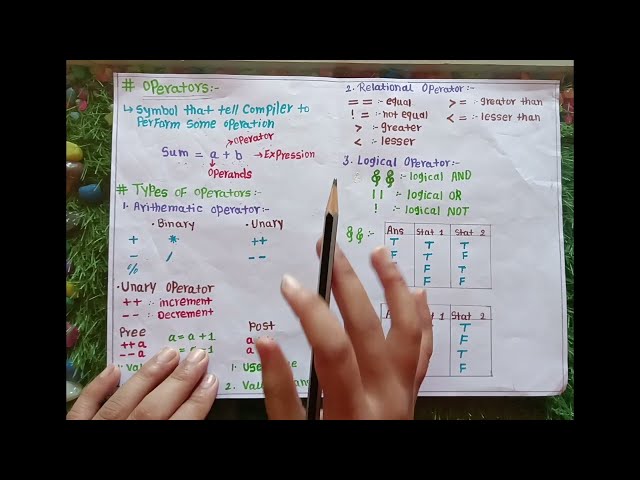 # Operators:-
↳ Symbol that tell Compiler to
Perform some operation
operator
Sum = a + b → Expression
operands
# Types of operators:-
1. Arithematic operator:-
• Binary • Unary
+ * ++
- / --
%
• Unary operator
++ :- increment
-- :- Decrement
Pree Post
++a a = a+1 a
--a -1 a
1. Val 1. Use e
2. Val an
2. Relational operator:-
== :- equal >= :- greator than
!= :- not equal <= :- lesser than
> :- greater
< :- lesser
3. Logical operator:-
&& :- logical AND
|| :- logical OR
! :- logical NOT
&& :- Ans Stat 1 Stat 2
T T T
F T F
F T
F F
A 1 Stat 2
T
F
T
F